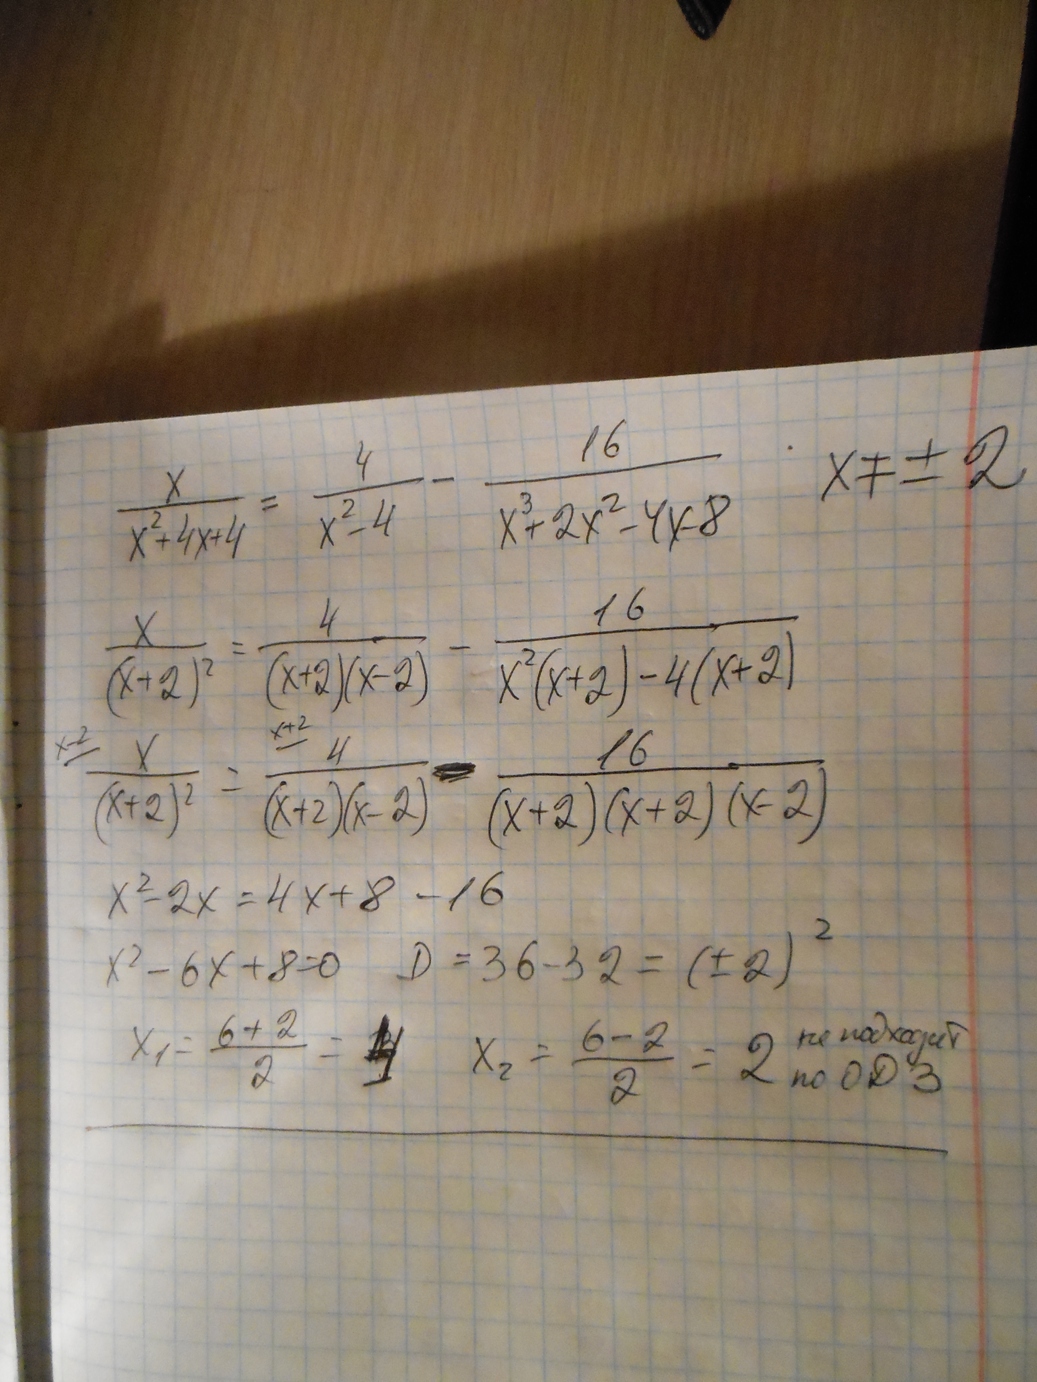 x/(x²+4x+4) = 4/(x²-4) - 16/(x³+2x²-4x-8) x ≠ ± 2
x/(x+2)² = 4/((x+2)(x-2)) - 16/(x²(x+2)-4(x+2))
x-2 x/(x+2)² = x+2 4/((x+2)(x-2)) - 16/((x+2)(x+2)(x-2))
x²-2x = 4x+8 -16
x²-6x+8=0 D = 36-32 = (±2)²
x₁ = (6+2)/2 = 4 x₂ = (6-2)/2 = 2 не подходит
по ОДЗ